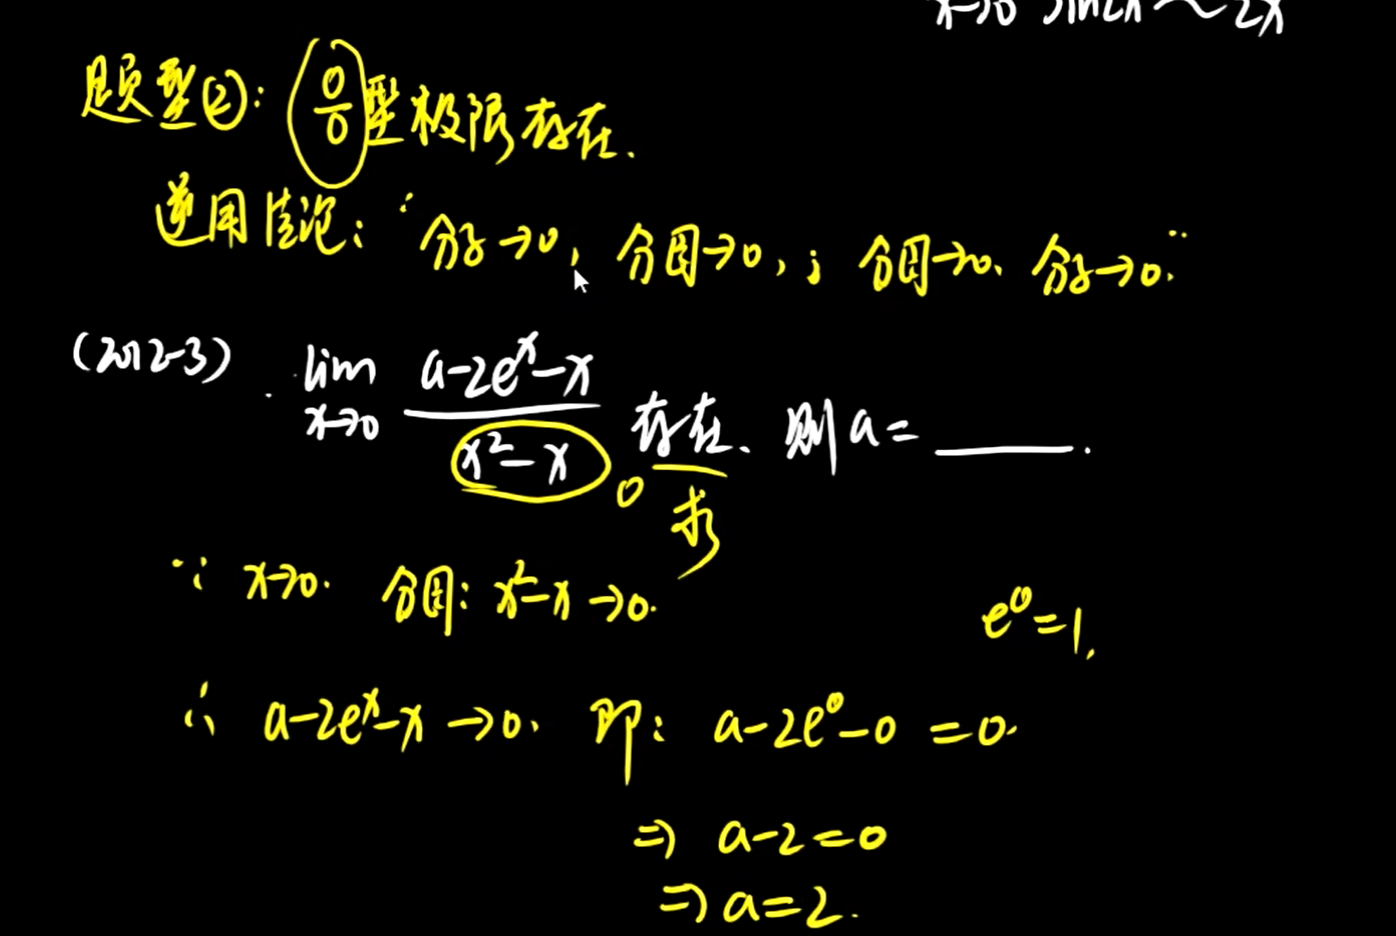 x→0 sin2x ~ 2x
题型②: 0/0 型极限存在.
逆用结论: "分子→0, 分母→0, ; 分母→0、分子→0."
(2012-3). lim x→0 (a-2e^x-x)/(x²-x) 存在、则 a = ____.
0 求
∵ x→0. 分母: x²-x→0.
e^0=1.
∴ a-2e^x-x→0. 即: a-2e^0-0=0.
⇒ a-2=0
⇒ a=2.